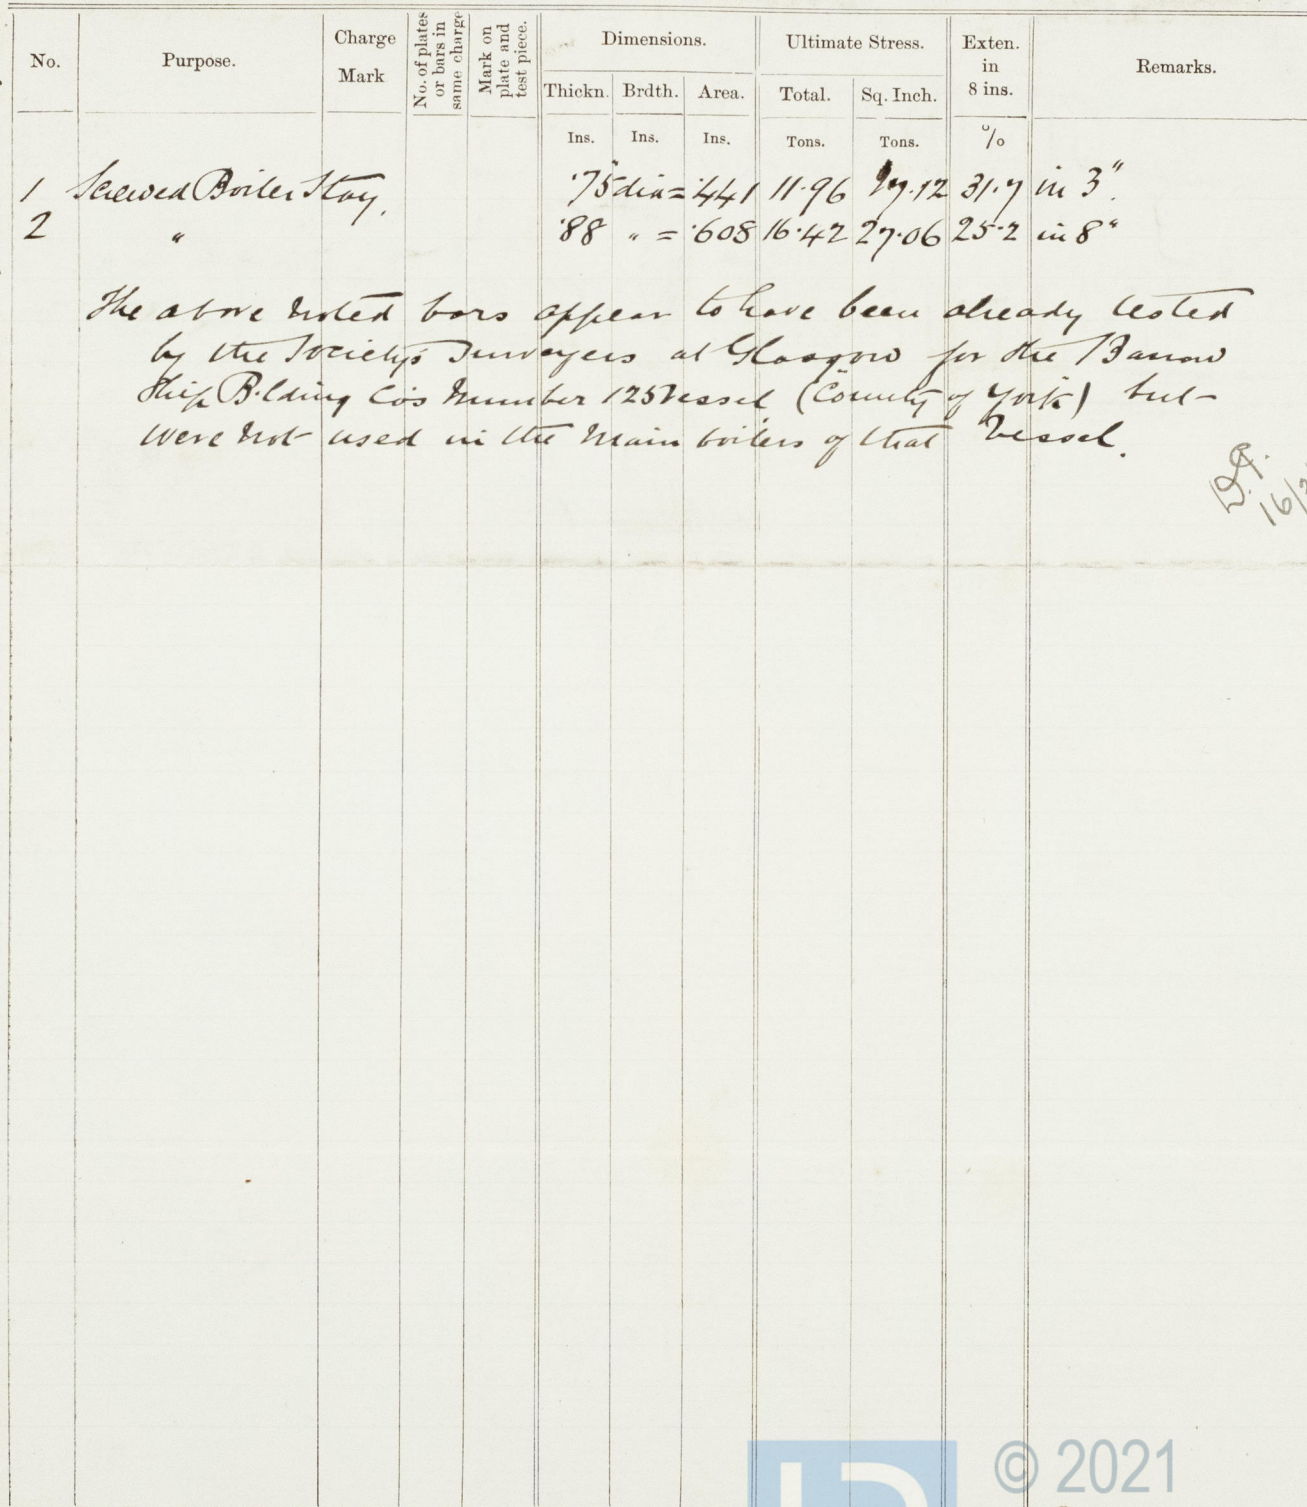 No. Purpose. Charge Mark No. of plates or bars in same charge Mark on plate and test piece. Dimensions. Ultimate Stress. Exten. in 8 ins. Remarks.
Thickn. Brdth. Area. Total. Sq. Inch.
Ins. Ins. Ins. Tons. Tons. %
1 Screwed Boiler Stay. .75" dia = .441 11.96 27.12 31.7 in 3".
2 " .88 " = .608 16.42 27.06 25.2 in 8"
The above noted bars appear to have been already tested
by the Society's Surveyors at Glasgow for the Barrow
Ship B.lding Co's Number 125 Vessel ("County of York") but
were not used in the Main boilers of that Vessel.
16/
© 2021